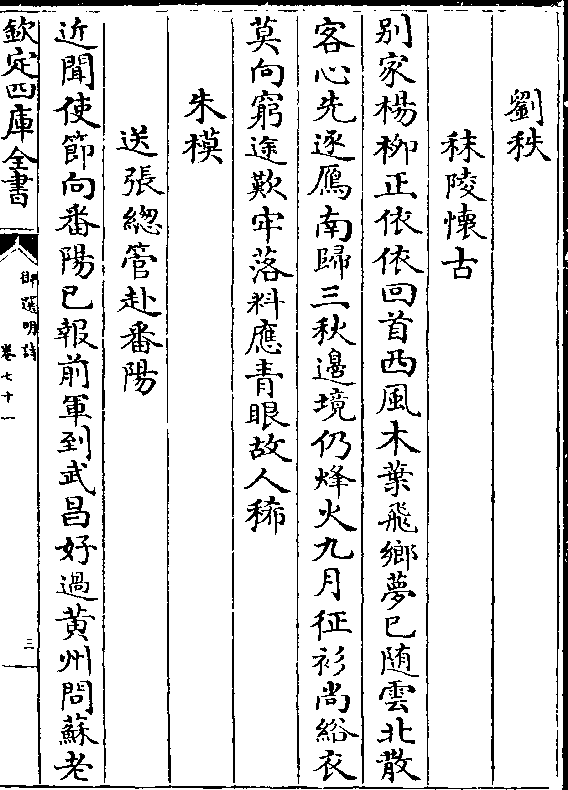 劉秩
秣陵懷古
別家楊柳正依依回首西風木葉飛鄉夢已随雲北散
客心先逐鴈南歸三秋邊境仍烽火九月征衫尚綌衣
莫向窮途歎牢落料應青眼故人稀
朱模
送張總管赴番陽
近聞使節向番陽已報前軍到武昌好過黃州問蘇老
欽定四庫全書
御選明詩
卷七十一
三